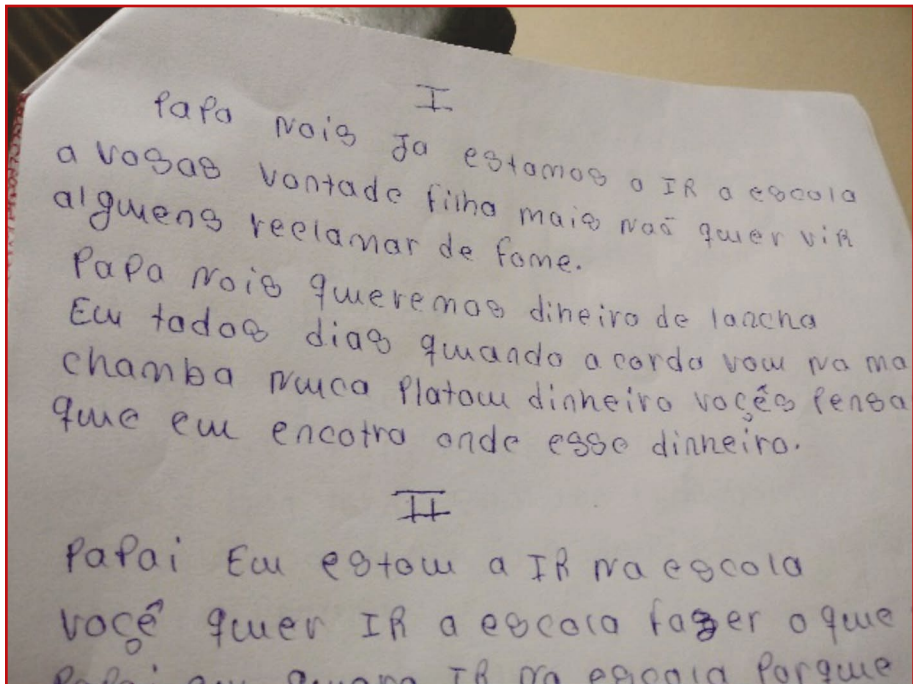 I
Papa Nois Ja estamos a IR a escola
a vosas vontade filha mais Naõ quer vir
alguens reclamar de fome.
Papa Nois queremos diheiro de lancha
Eu tados dias quando acorda vou na ma
chamba Nuca Platou dinheiro vocês Pensa
que eu encotra onde esse dinheiro.
II
Papai Eu estou a IR na escola
você quer IR a escola fazer o que
Papai eu IR na escola Porque